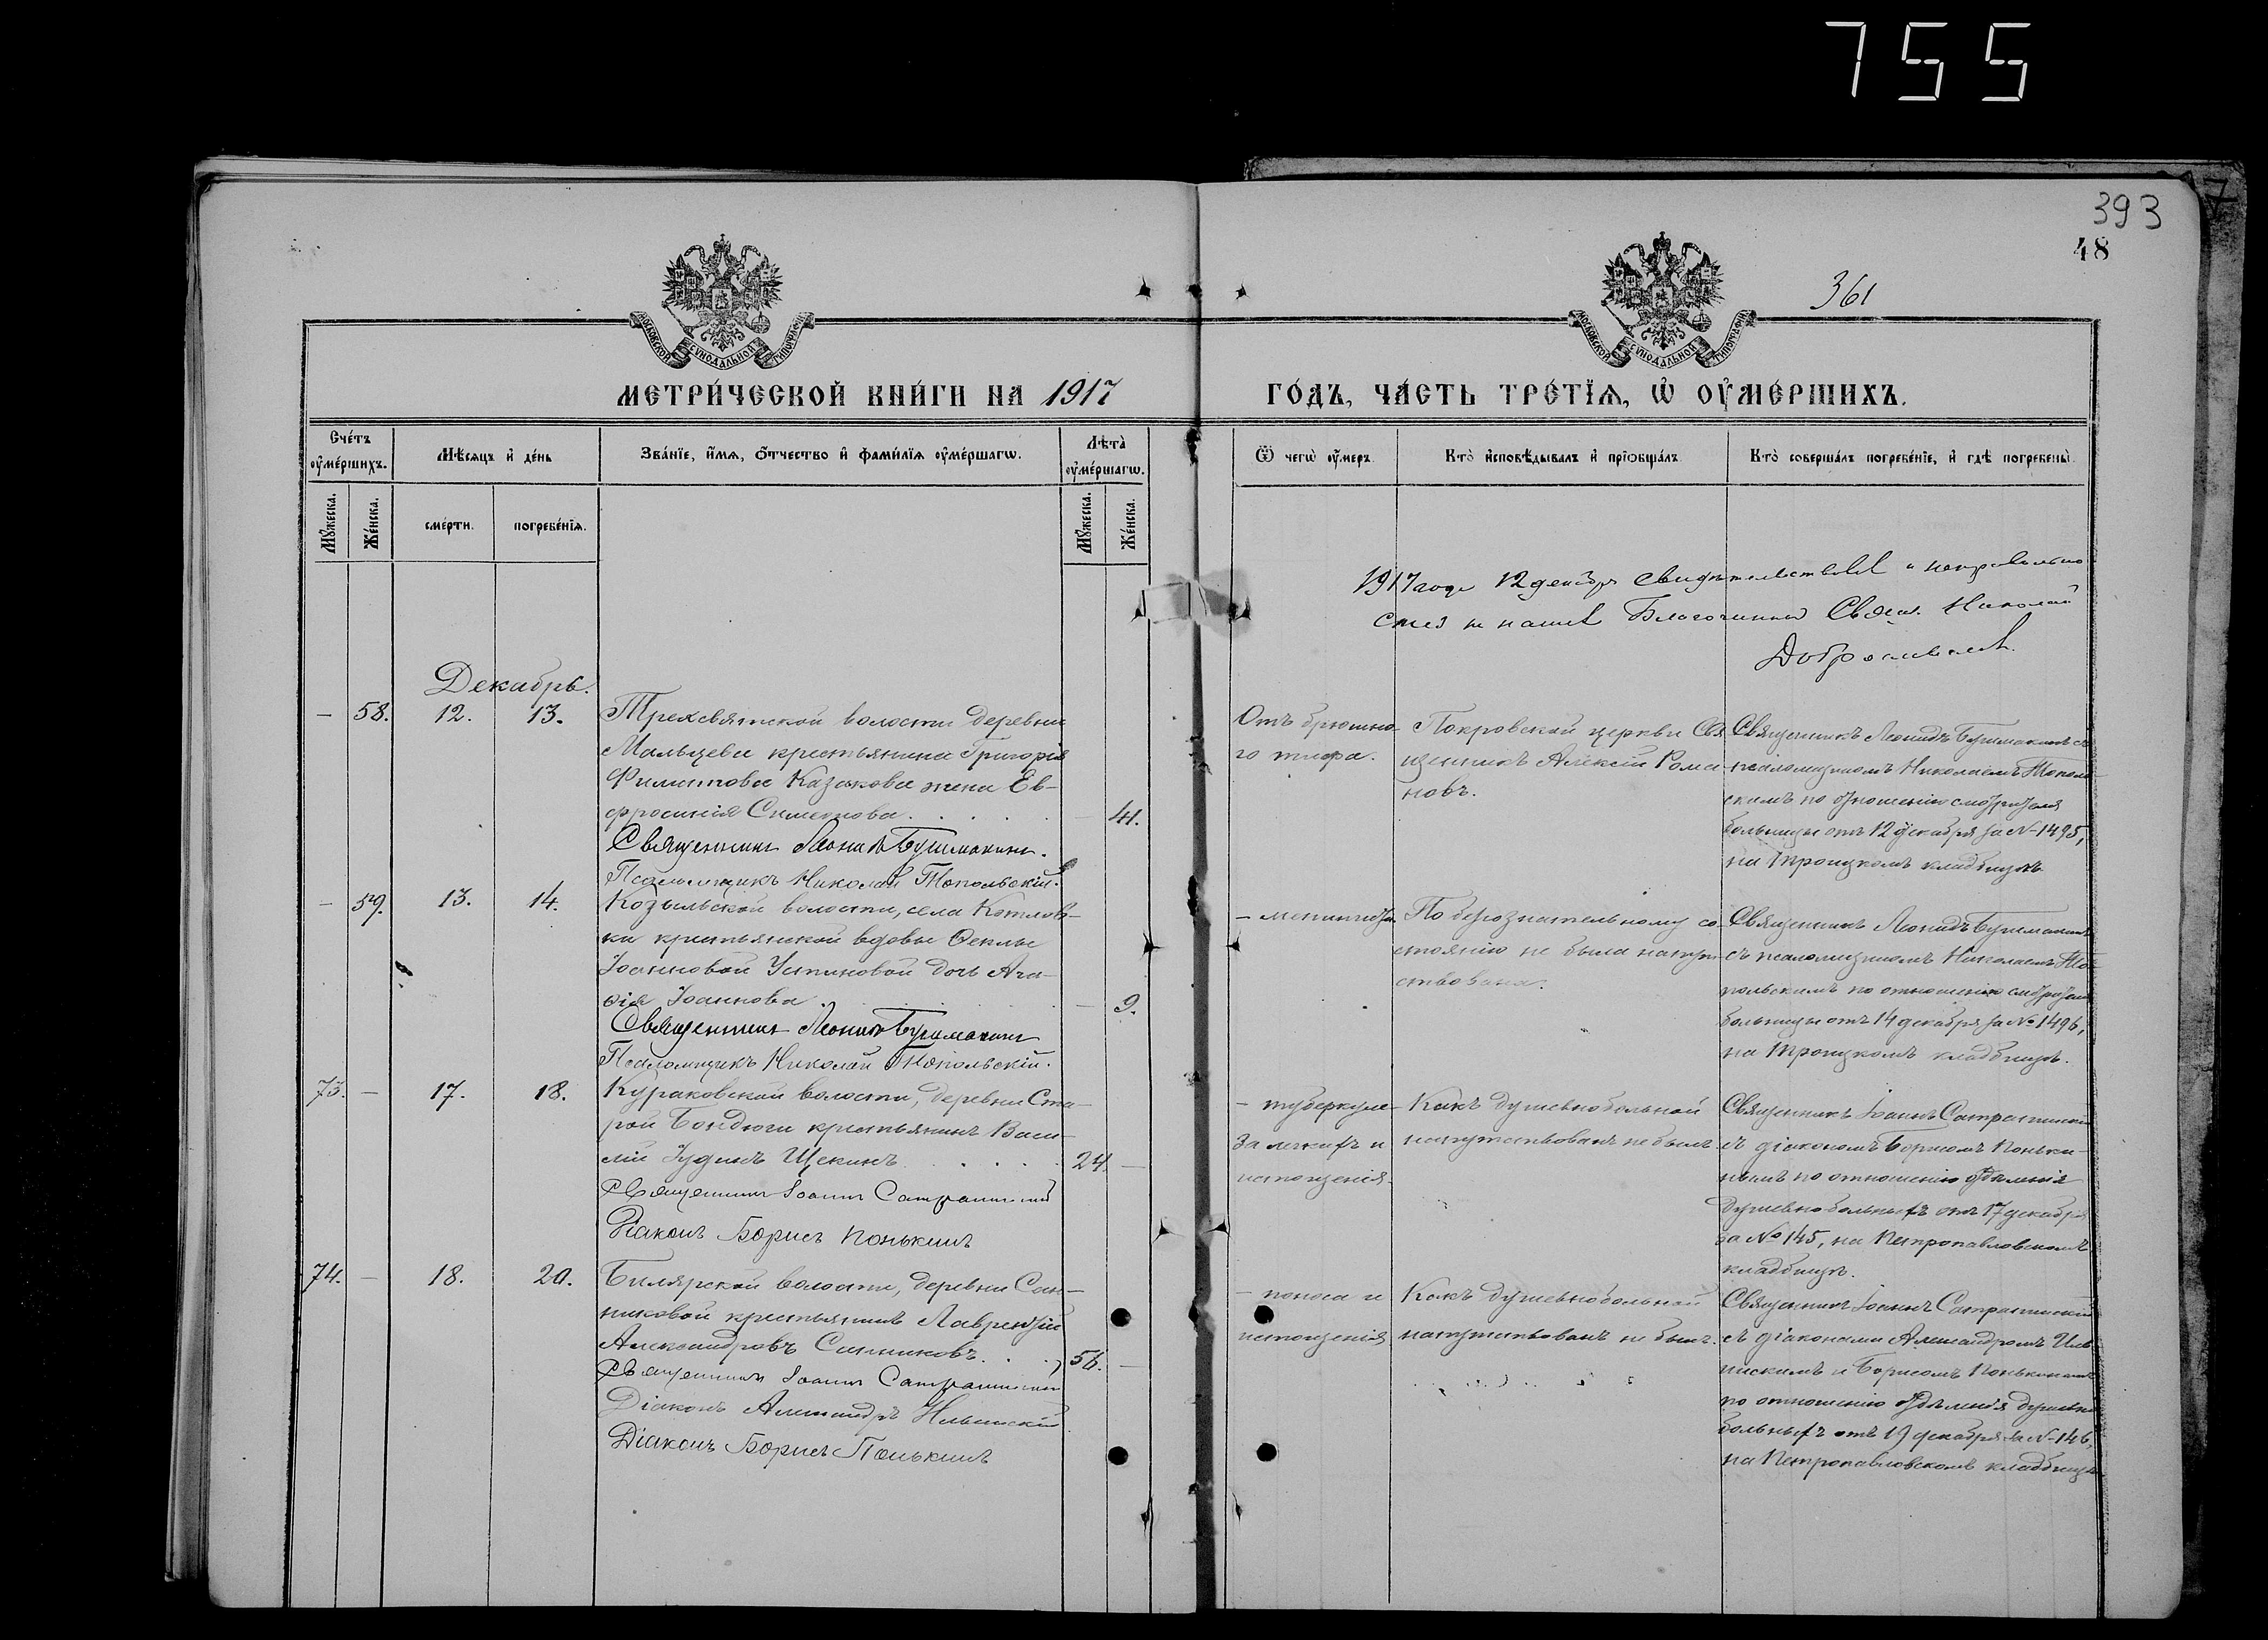 755
393
48
361
МОСКОВСКОЙ СУНОДАЛЬНОЙ ТИПОГРАФІИ
МОСКОВСКОЙ СУНОДАЛЬНОЙ ТИПОГРАФІИ
МЕТРИ́ЧЕСКОЙ КНИ́ГИ НА 1917
ГО́ДЪ, ЧА́СТЬ ТРЕ́ТЇѦ, Ѡ҆ ОУ҆МЕ́РШИХЪ.
Сче́тъ оу҆ме́ршихъ.
Мѣ́сяцъ и҆ де́нь
Зва́нїе, и҆́мя, ѻ҆́тчество и҆ фами́лїя оу҆ме́ршагѡ.
Лѣта̀ оу҆ме́ршагѡ.
Ѿ чегѡ̀ оу҆́меръ.
Кто̀ и҆сповѣ́дывалъ и҆ прїѡбща́лъ.
Кто̀ соверша́лъ погребе́нїе, и҆ гдѣ̀ погребены̀.
Мꙋ́жеска.
Же́нска.
сме́рти.
погребе́нїя.
Мꙋ́жеска.
Же́нска.
1917 года 12 декабр свидѣтельствовал и неправильно
не нашел Благочинный Свящ. Николай
Декабрь.
— 58. 12. 13.
Трехсвятской волости деревни
Мальцева крестьянина Григорія
Филиппова Казакова жена Ев-
фросинія Симеонова . . . . — 41.
Священникъ Леонидъ Бушмакинъ.
Псаломщикъ Николай Топольскій.
Отъ брюшно-
го тифа.
Покровской церкви Свя
щенникъ Алексій Рома
новъ.
Священникъ Леонидъ Бушмакинъ съ
псаломщикомъ Николаемъ Тополь
скимъ по отношенію смотрителя
больницы отъ 12 декабря за № 1495,
на Троицкомъ кладбищѣ.
— 59. 13. 14.
Козыльской волости, села Котлов-
ки крестьянской вдовы Ѳеклы
Іоанновой Устиновой дочь Ага-
ѳія Іоаннова . . . . — 9.
Священникъ Леонидъ Бушмакинъ
Псаломщикъ Николай Топольскій.
— менингита
По безсознательному со
стоянію не была напут
ствована.
Священникъ Леонидъ Бушмакинъ
съ псаломщикомъ Николаемъ То-
польскимъ по отношенію смотрителя
больницы отъ 14 декабря за № 1496,
на Троицкомъ кладбищѣ.
73. — 17. 18.
Кураковской волости, деревни Ста-
рой Бондюги крестьянинъ Васи-
лій Іудинъ Щекинъ . . . . 24. —
Священникъ Іоаннъ Сатрапинскій
Діаконъ Борисъ Понькинъ
— туберкуле-
за легкихъ и
истощенія.
Какъ душевнобольной
напутствованъ не былъ
Священникъ Іоаннъ Сатрапинскій
съ діакономъ Борисомъ Понькi-
нымъ по отношенію отдѣленія
душевно больныхъ отъ 17 декабря
за № 145, на Петропавловскомъ
кладбищѣ.
74. — 18. 20.
Билярской волости, деревни Сан-
никовой крестьянинъ Лаврентій
Александровъ Санниковъ . . . 56. —
Священникъ Іоаннъ Сатрапинскій
Діаконъ Александръ Ильинскій
Діаконъ Борисъ Понькинъ
— поноса и
истощенія
Какъ душевнобольной
напутствованъ не былъ.
Священникъ Іоаннъ Сатрапинскій
съ діаконами Александромъ Иль-
инскимъ и Борисомъ Понькинымъ
по отношенію отдѣленія душевно
больныхъ отъ 19 декабря за № 146,
на Петропавловскомъ кладбищѣ